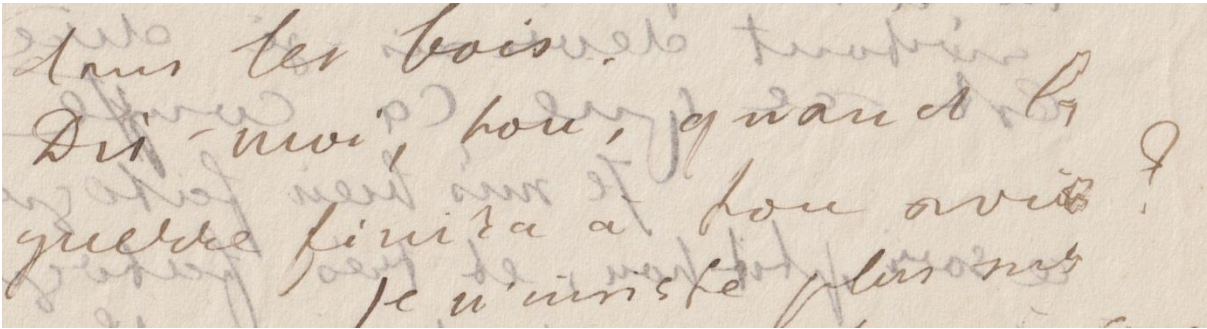 dans les bois.
Dis-moi, pou, quand la
guerre finira à pou avis ?
Je n'insiste plus sur